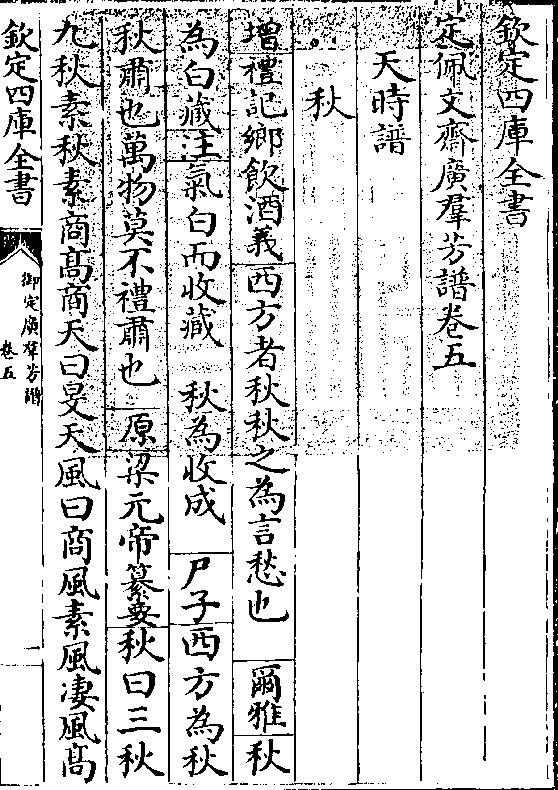 欽定四庫全書
定佩文齋廣羣芳譜卷五
天時譜
秋
增禮記鄉飲酒義西方者秋秋之為言愁也 爾雅秋
為白藏注氣白而收藏 秋為收成 尸子西方為秋
秋肅也萬物莫不禮肅也 原梁元帝纂要秋曰三秋
九秋素秋素商高商天曰旻天風曰商風素風凄風高
欽定四庫全書
御定廣羣芳譜
卷五
一